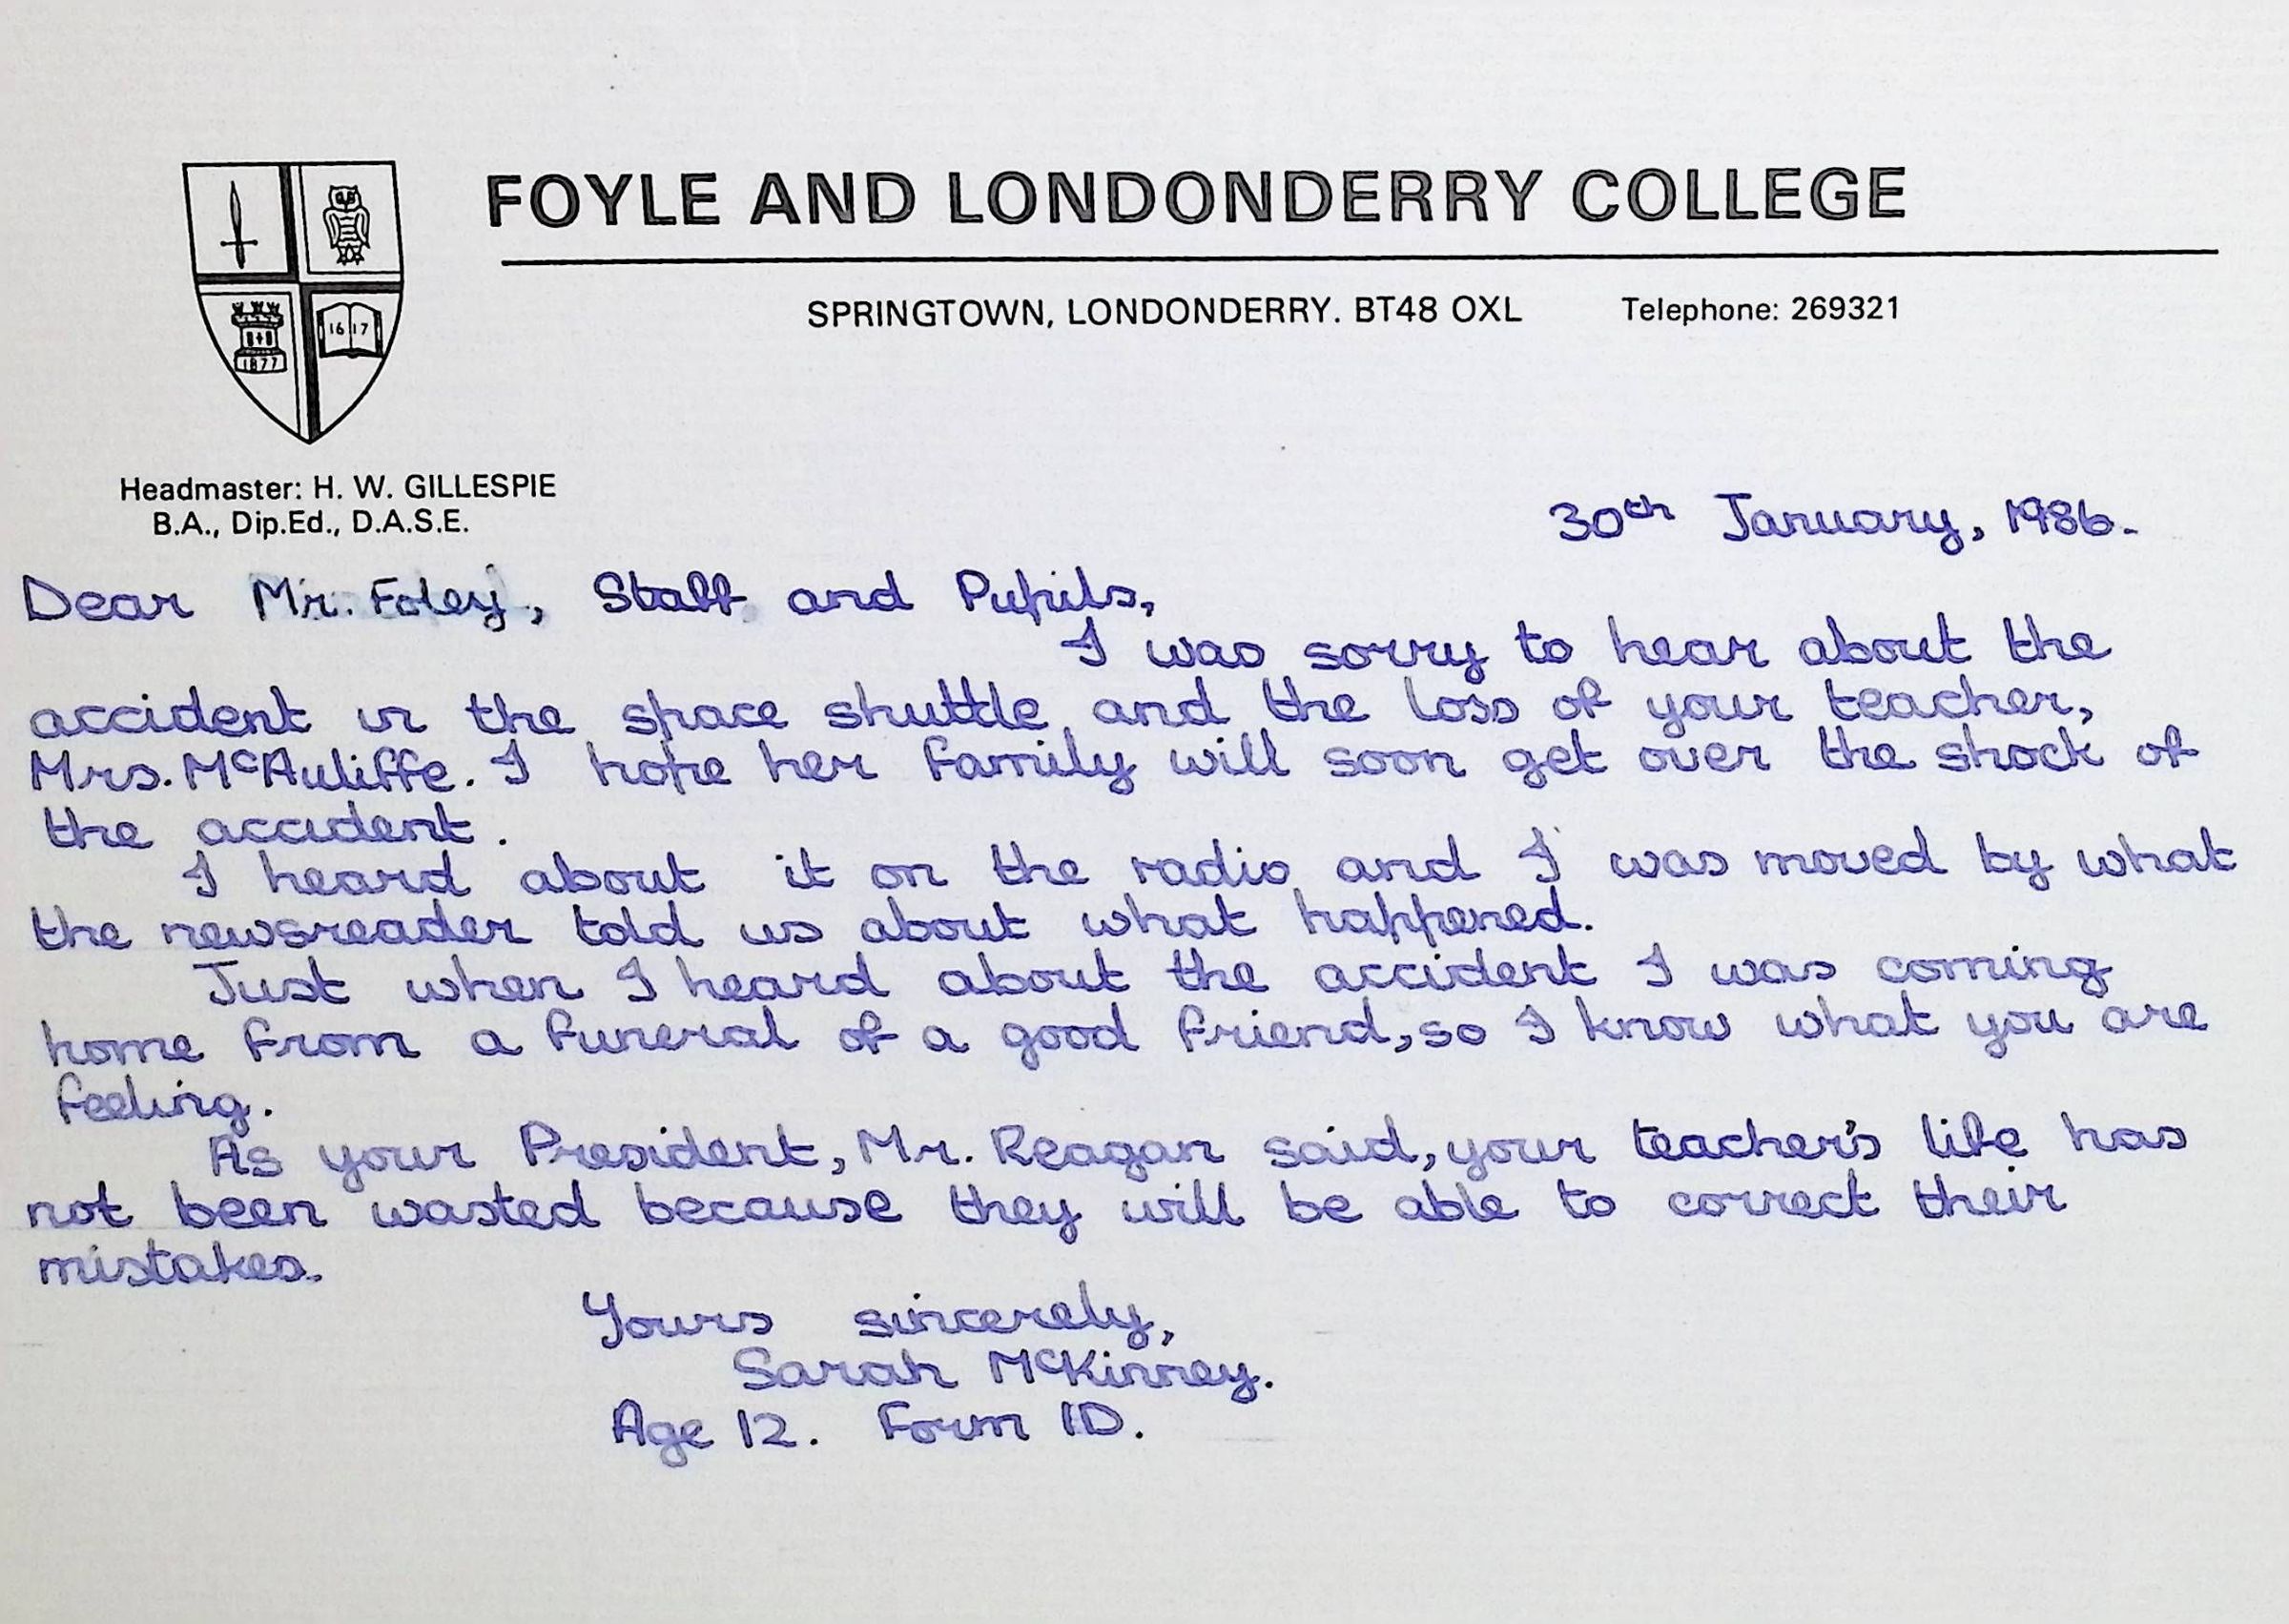 FOYLE AND LONDONDERRY COLLEGE
SPRINGTOWN, LONDONDERRY. BT48 OXL Telephone: 269321
16 17
1877
Headmaster: H. W. GILLESPIE
B.A., Dip.Ed., D.A.S.E.
30th January, 1986.
Dear Mr. Foley, Staff and Pupils,
I was sorry to hear about the
accident in the space shuttle, and the loss of your teacher,
Mrs. McAuliffe. I hope her family will soon get over the shock of
the accident.
I heard about it on the radio, and I was moved by what
the newsreader told us about what happened.
Just when I heard about the accident I was coming
home from a funeral of a good friend, so I know what you are
feeling.
As your President, Mr. Reagan said, your teacher's life has
not been wasted because they will be able to correct their
mistakes.
Yours sincerely,
Sarah McKinney.
Age 12. Form 1D.